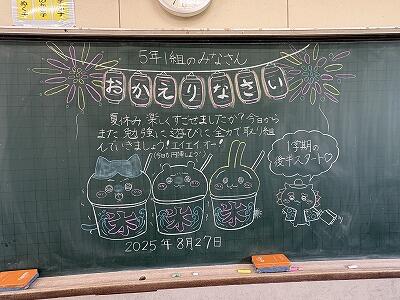 5年1組のみなさん
おかえりなさい
夏休み楽しくすごせましたか?今日から
また勉強に遊びに全力で取り組
んでいきましょう!エイエイオー!
1学期の
後半スタート♡
氷 氷 氷
2025年8月27日